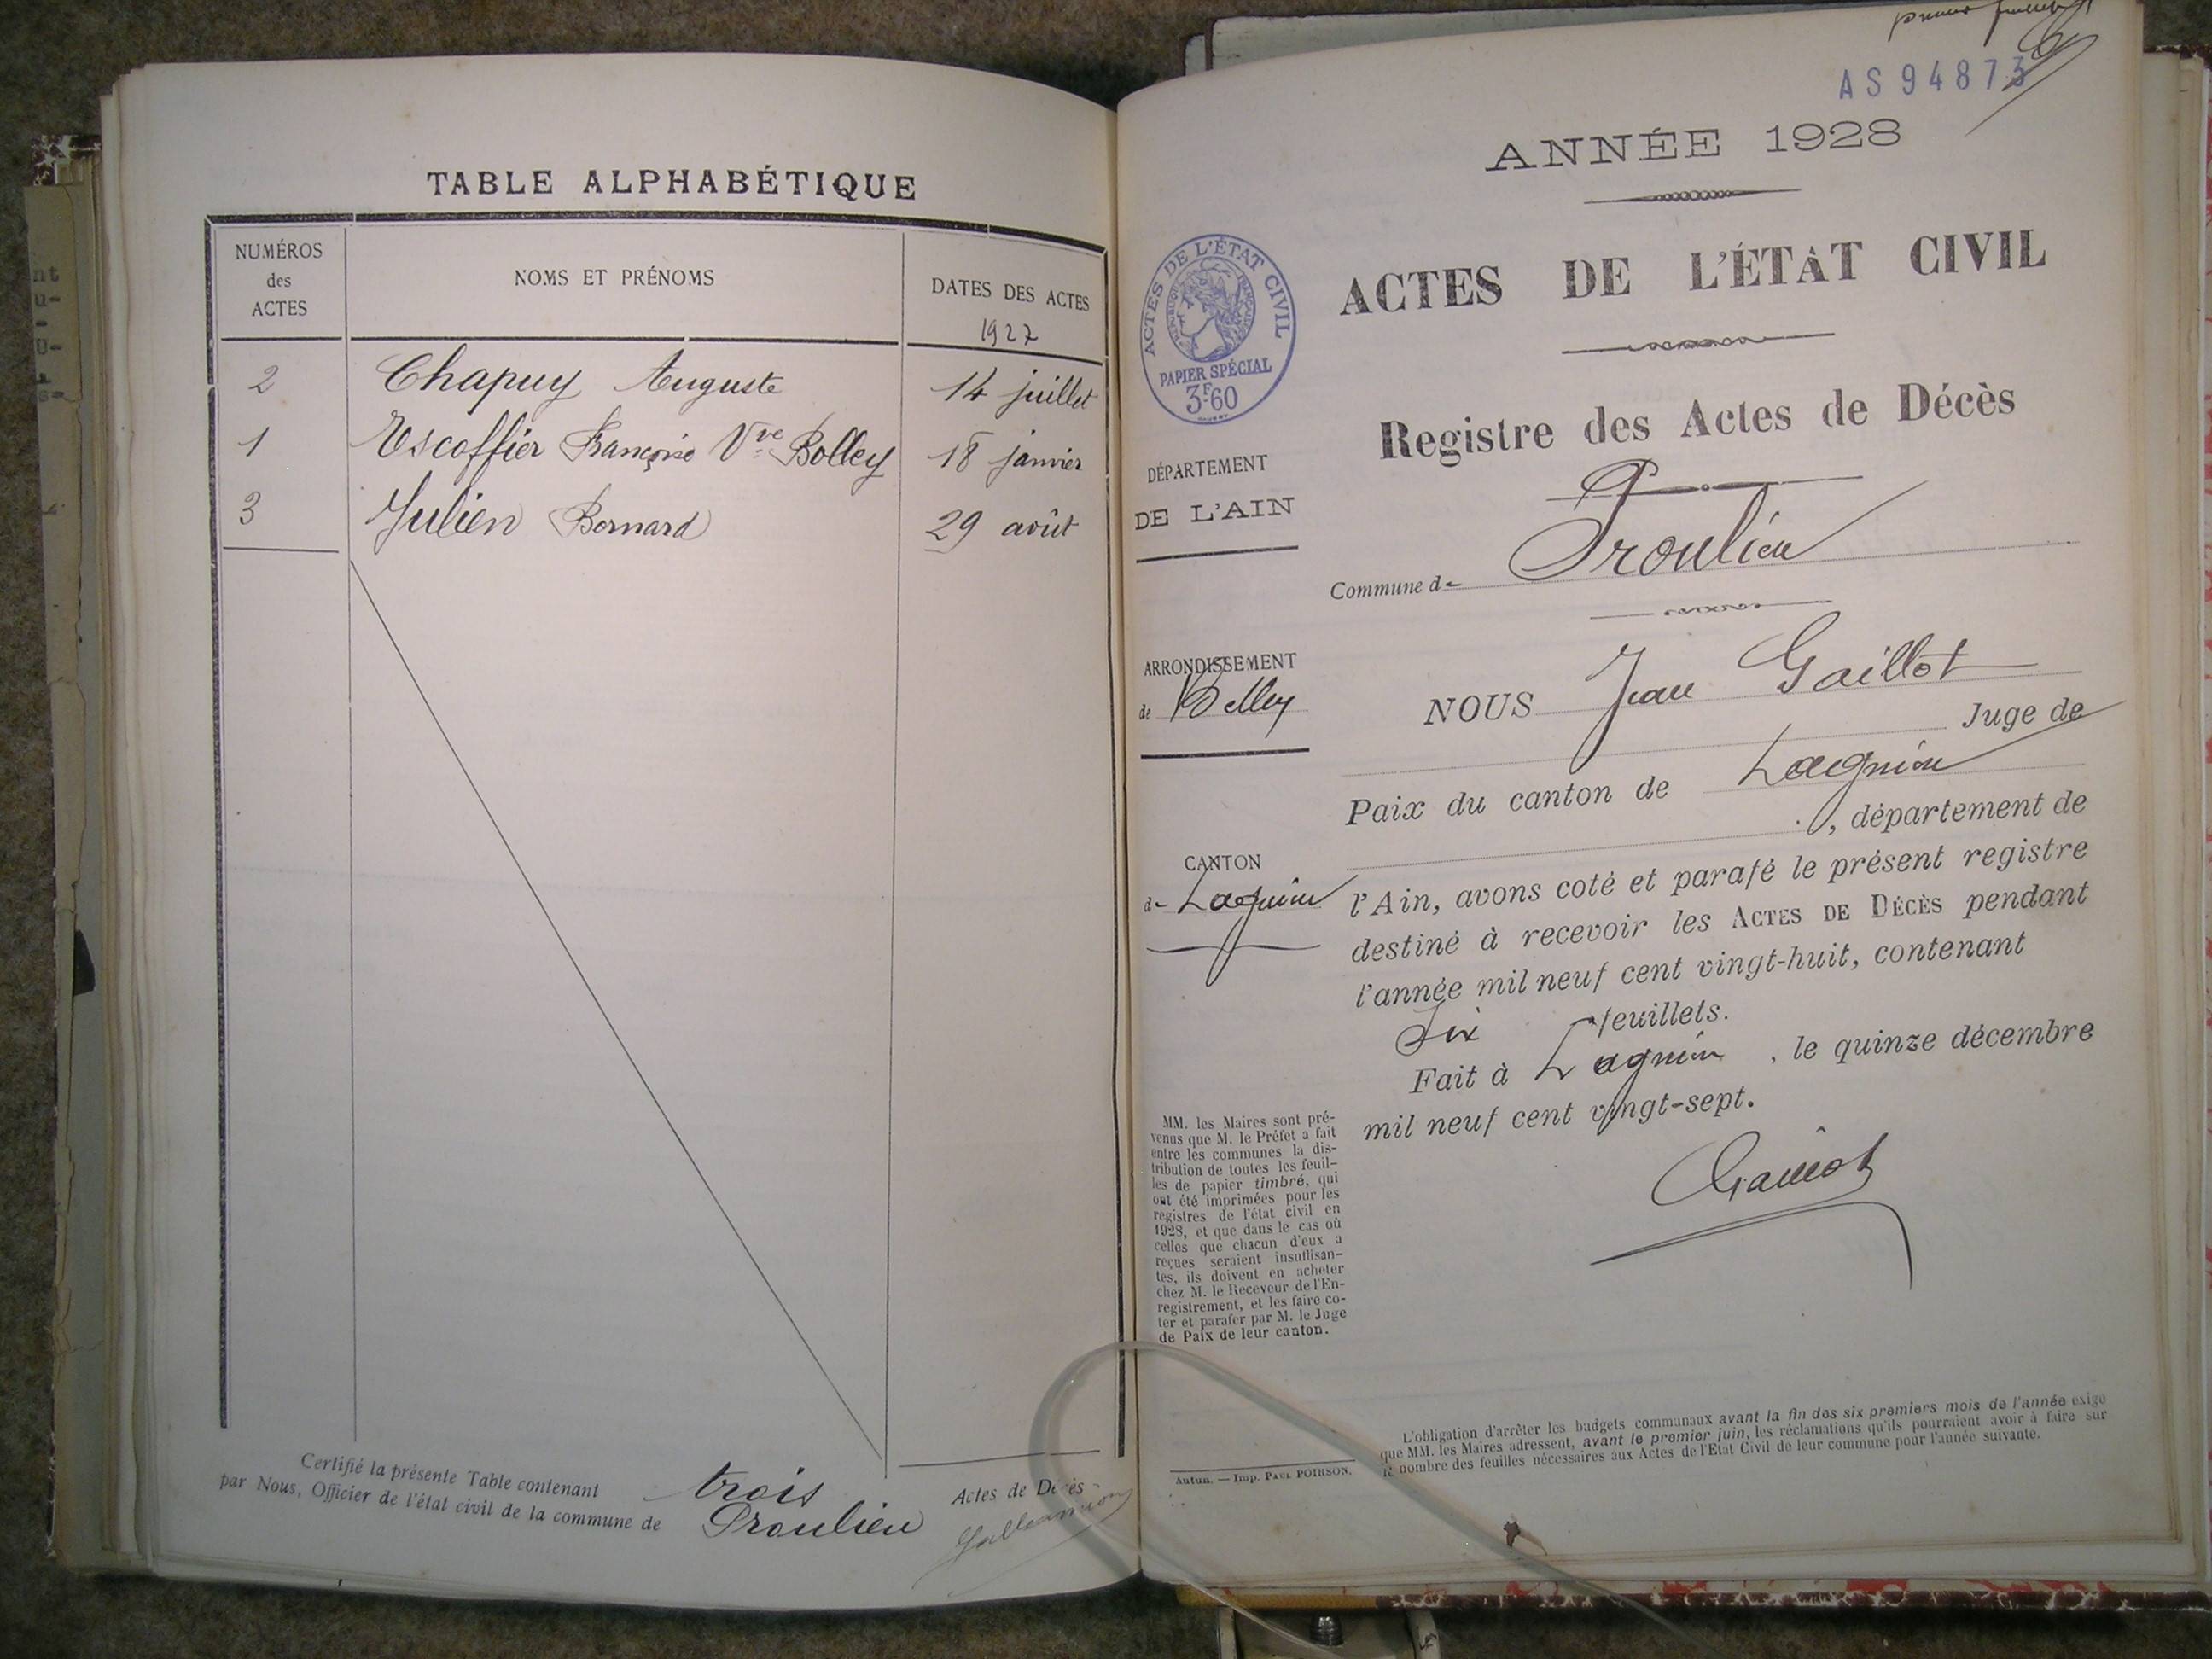 TABLE ALPHABÉTIQUE
NUMÉROS
des
ACTES
NOMS ET PRÉNOMS
DATES DES ACTES
1927
2 Chapuy Auguste 14 juillet
1 Escoffier Françoise Vve Bolley 18 janvier
3 Julien Bernard 29 août
Certifié la présente Table contenant trois Actes de Décès
par Nous, Officier de l'état civil de la commune de Proulieu
premier
AS94873
ANNÉE 1928
ACTES DE L'ÉTAT CIVIL
ACTES DE L'ÉTAT CIVIL
RÉPUBLIQUE FRANÇAISE
PAPIER SPÉCIAL
3F60
Registre des Actes de Décès
DÉPARTEMENT
DE L'AIN
Commune de Proulieu
ARRONDISSEMENT
de Belley
CANTON
de Lagnieu
NOUS Jean Gaillot
Juge de
Paix du canton de Lagnieu
, département de
l'Ain, avons coté et parafé le présent registre
destiné à recevoir les ACTES DE DÉCÈS pendant
l'année mil neuf cent vingt-huit, contenant
Six feuillets.
Fait à Lagnieu, le quinze décembre
mil neuf cent vingt-sept.
Gaillot
MM. les Maires sont pré-
venus que M. le Préfet a fait
entre les communes la dis-
tribution de toutes les feuil-
les de papier timbré, qui
ont été imprimées pour les
registres de l'état civil en
1928, et que dans le cas où
celles que chacun d'eux a
reçues seraient insuffisan-
tes, ils doivent en acheter
chez M. le Receveur de l'En-
registrement, et les faire co-
ter et parafer par M. le Juge
de Paix de leur canton.
Autun. — Imp. PAUL POIRSON.
L'obligation d'arrêter les budgets communaux avant la fin des six premiers mois de l'année exige
que MM. les Maires adressent, avant le premier juin, les réclamations qu'ils pourraient avoir à faire sur
le nombre des feuilles nécessaires aux Actes de l'Etat Civil de leur commune pour l'année suivante.